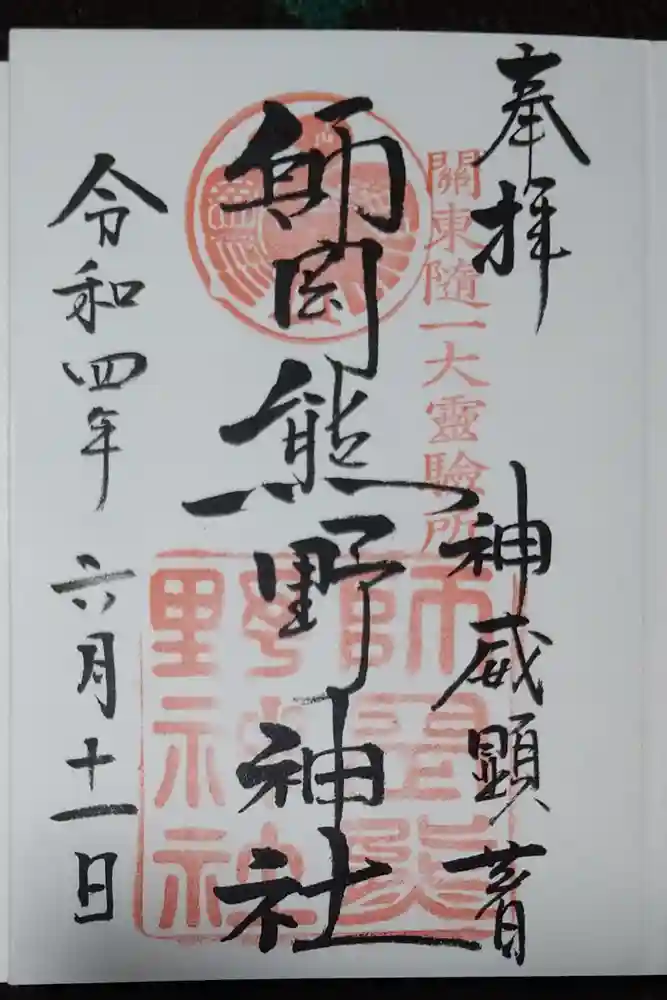 奉拝
神威顕著
關東随一大靈驗所
師岡熊野神社
師岡熊野神社
令和四年 六月十一日